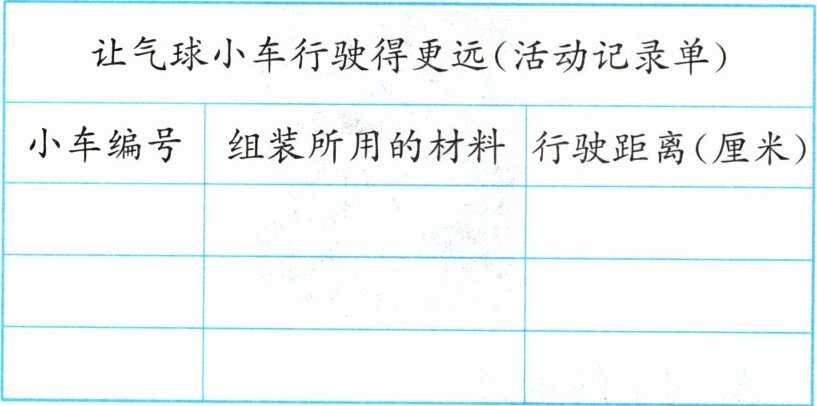 让气球小车行驶得更远(活动记录单)
小车编号 组装所用的材料 行驶距离(厘米)